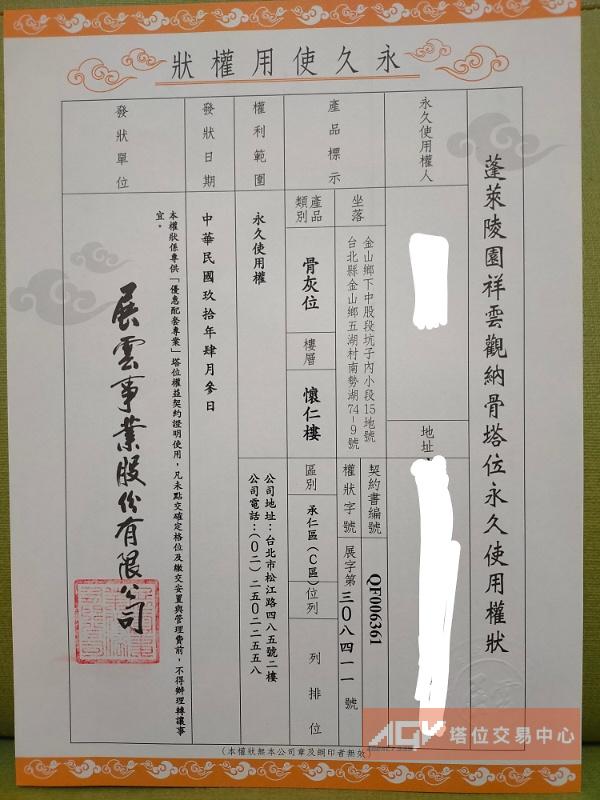 永久使用權狀
蓬萊陵園祥雲觀納骨塔位永久使用權狀
永久使用權人
地址
產品標示
坐落
金山鄉下中股段坑子內小段15地號
台北縣金山鄉五湖村南勢湖74-9號
契約書編號
QF006361
權狀字號
展字第三0八四一一號
產品類別
骨灰位
樓層
懷仁樓
區別
承仁區(C區)
位列
列 排 位
權利範圍
永久使用權
公司地址:台北市松江路四八五號二樓
公司電話:(0二)二五0二二五五八
發狀日期
中華民國玖拾年肆月參日
發狀單位
本權狀係專供「優惠配套專案」塔位權益契約證明使用,凡未點交確定格位及繳交安置與管理費前,不得辦理轉讓事
宜。
展雲事業股份有限公司
(本權狀無本公司章及鋼印者無效)
AGV 塔位交易中心